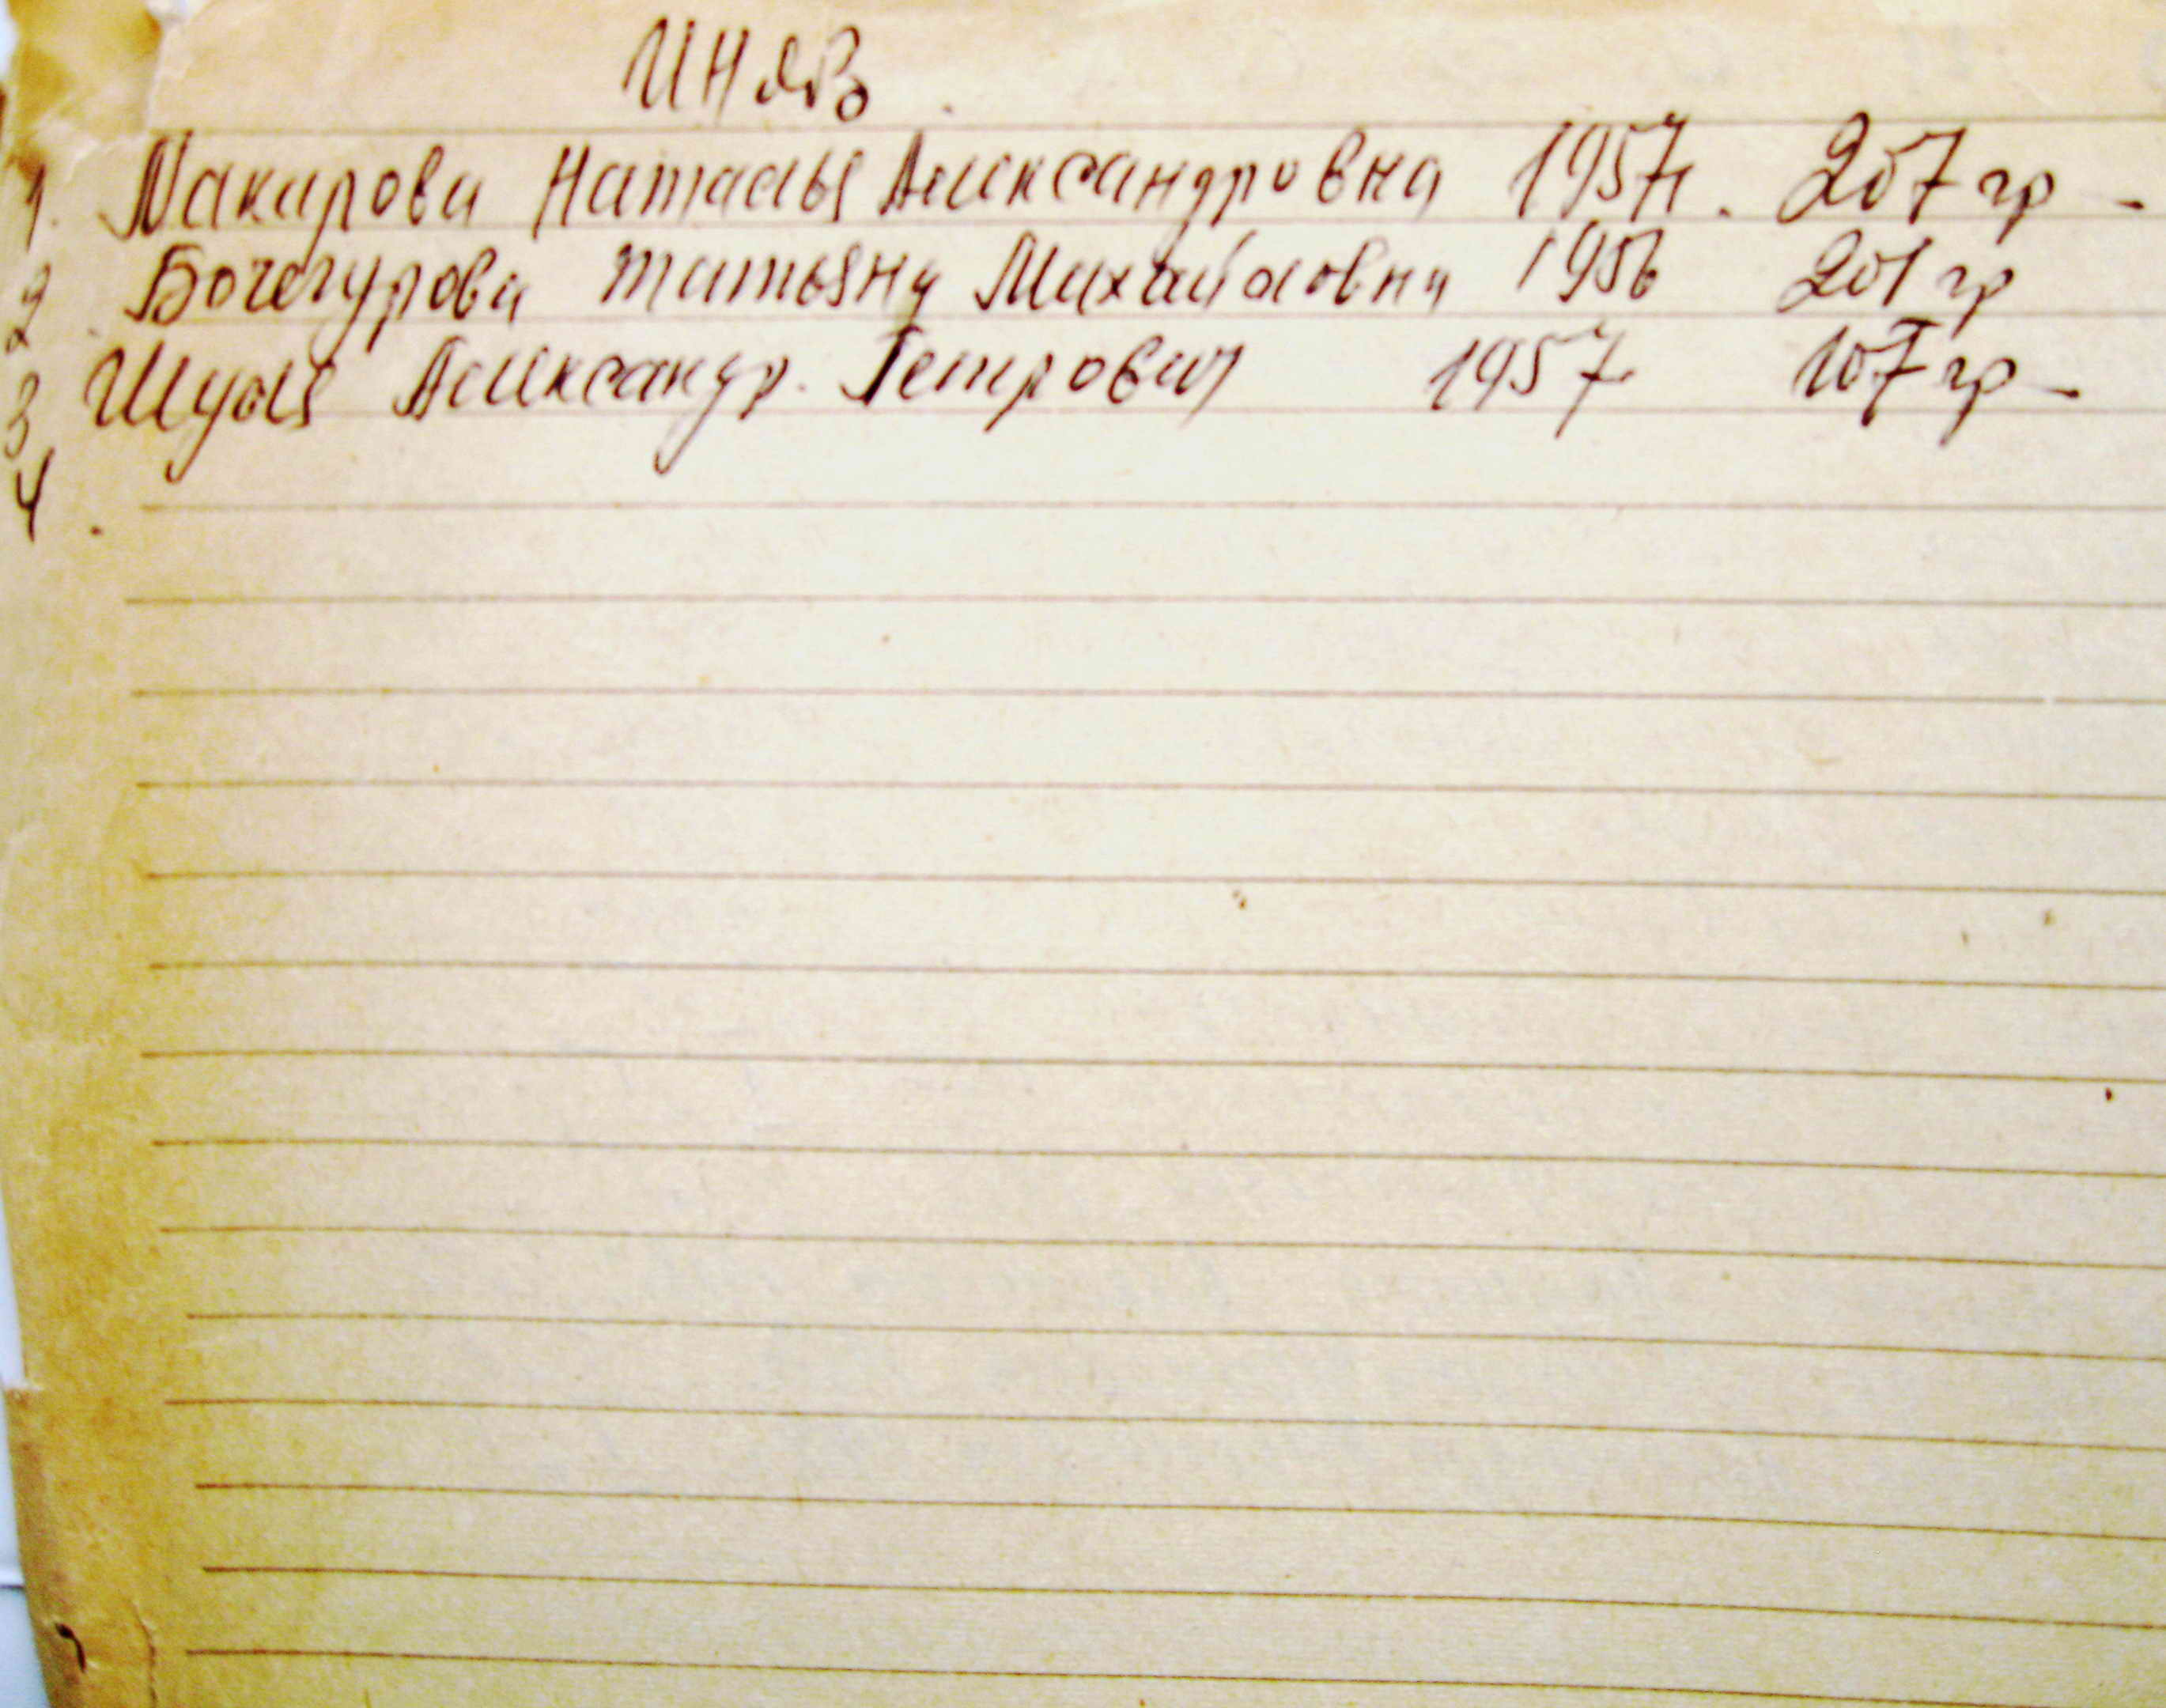 ИНЯЗ
1. Макарова Наталья Александровна 1957. 207 гр -
2. Бочегурова Татьяна Михайловна 1956 201 гр
3 Шуля Александр. Петрович 1957 107 гр -
4.